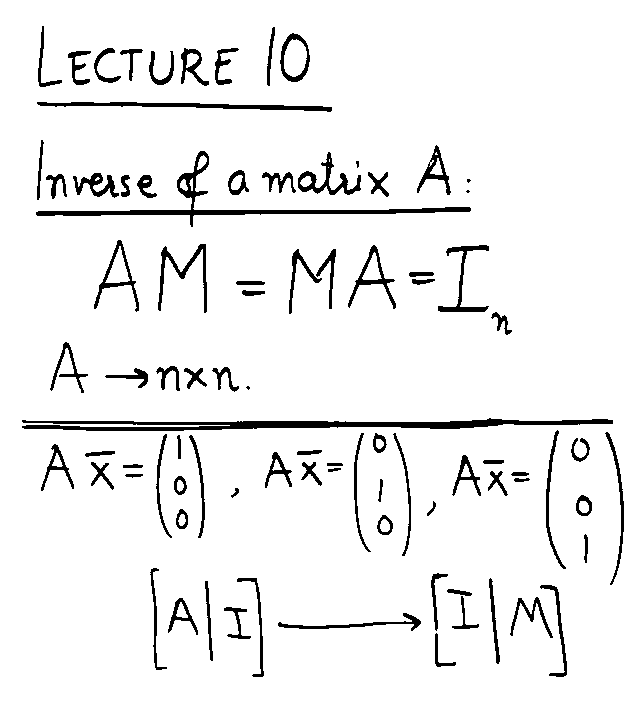 LECTURE 10
Inverse of a matrix A:
AM = MA = Iₙ
A → n×n.
A x̄ = (1 0 0), A x̄ = (0 1 0), A x̄ = (0 0 1)
[A|I] → [I|M]